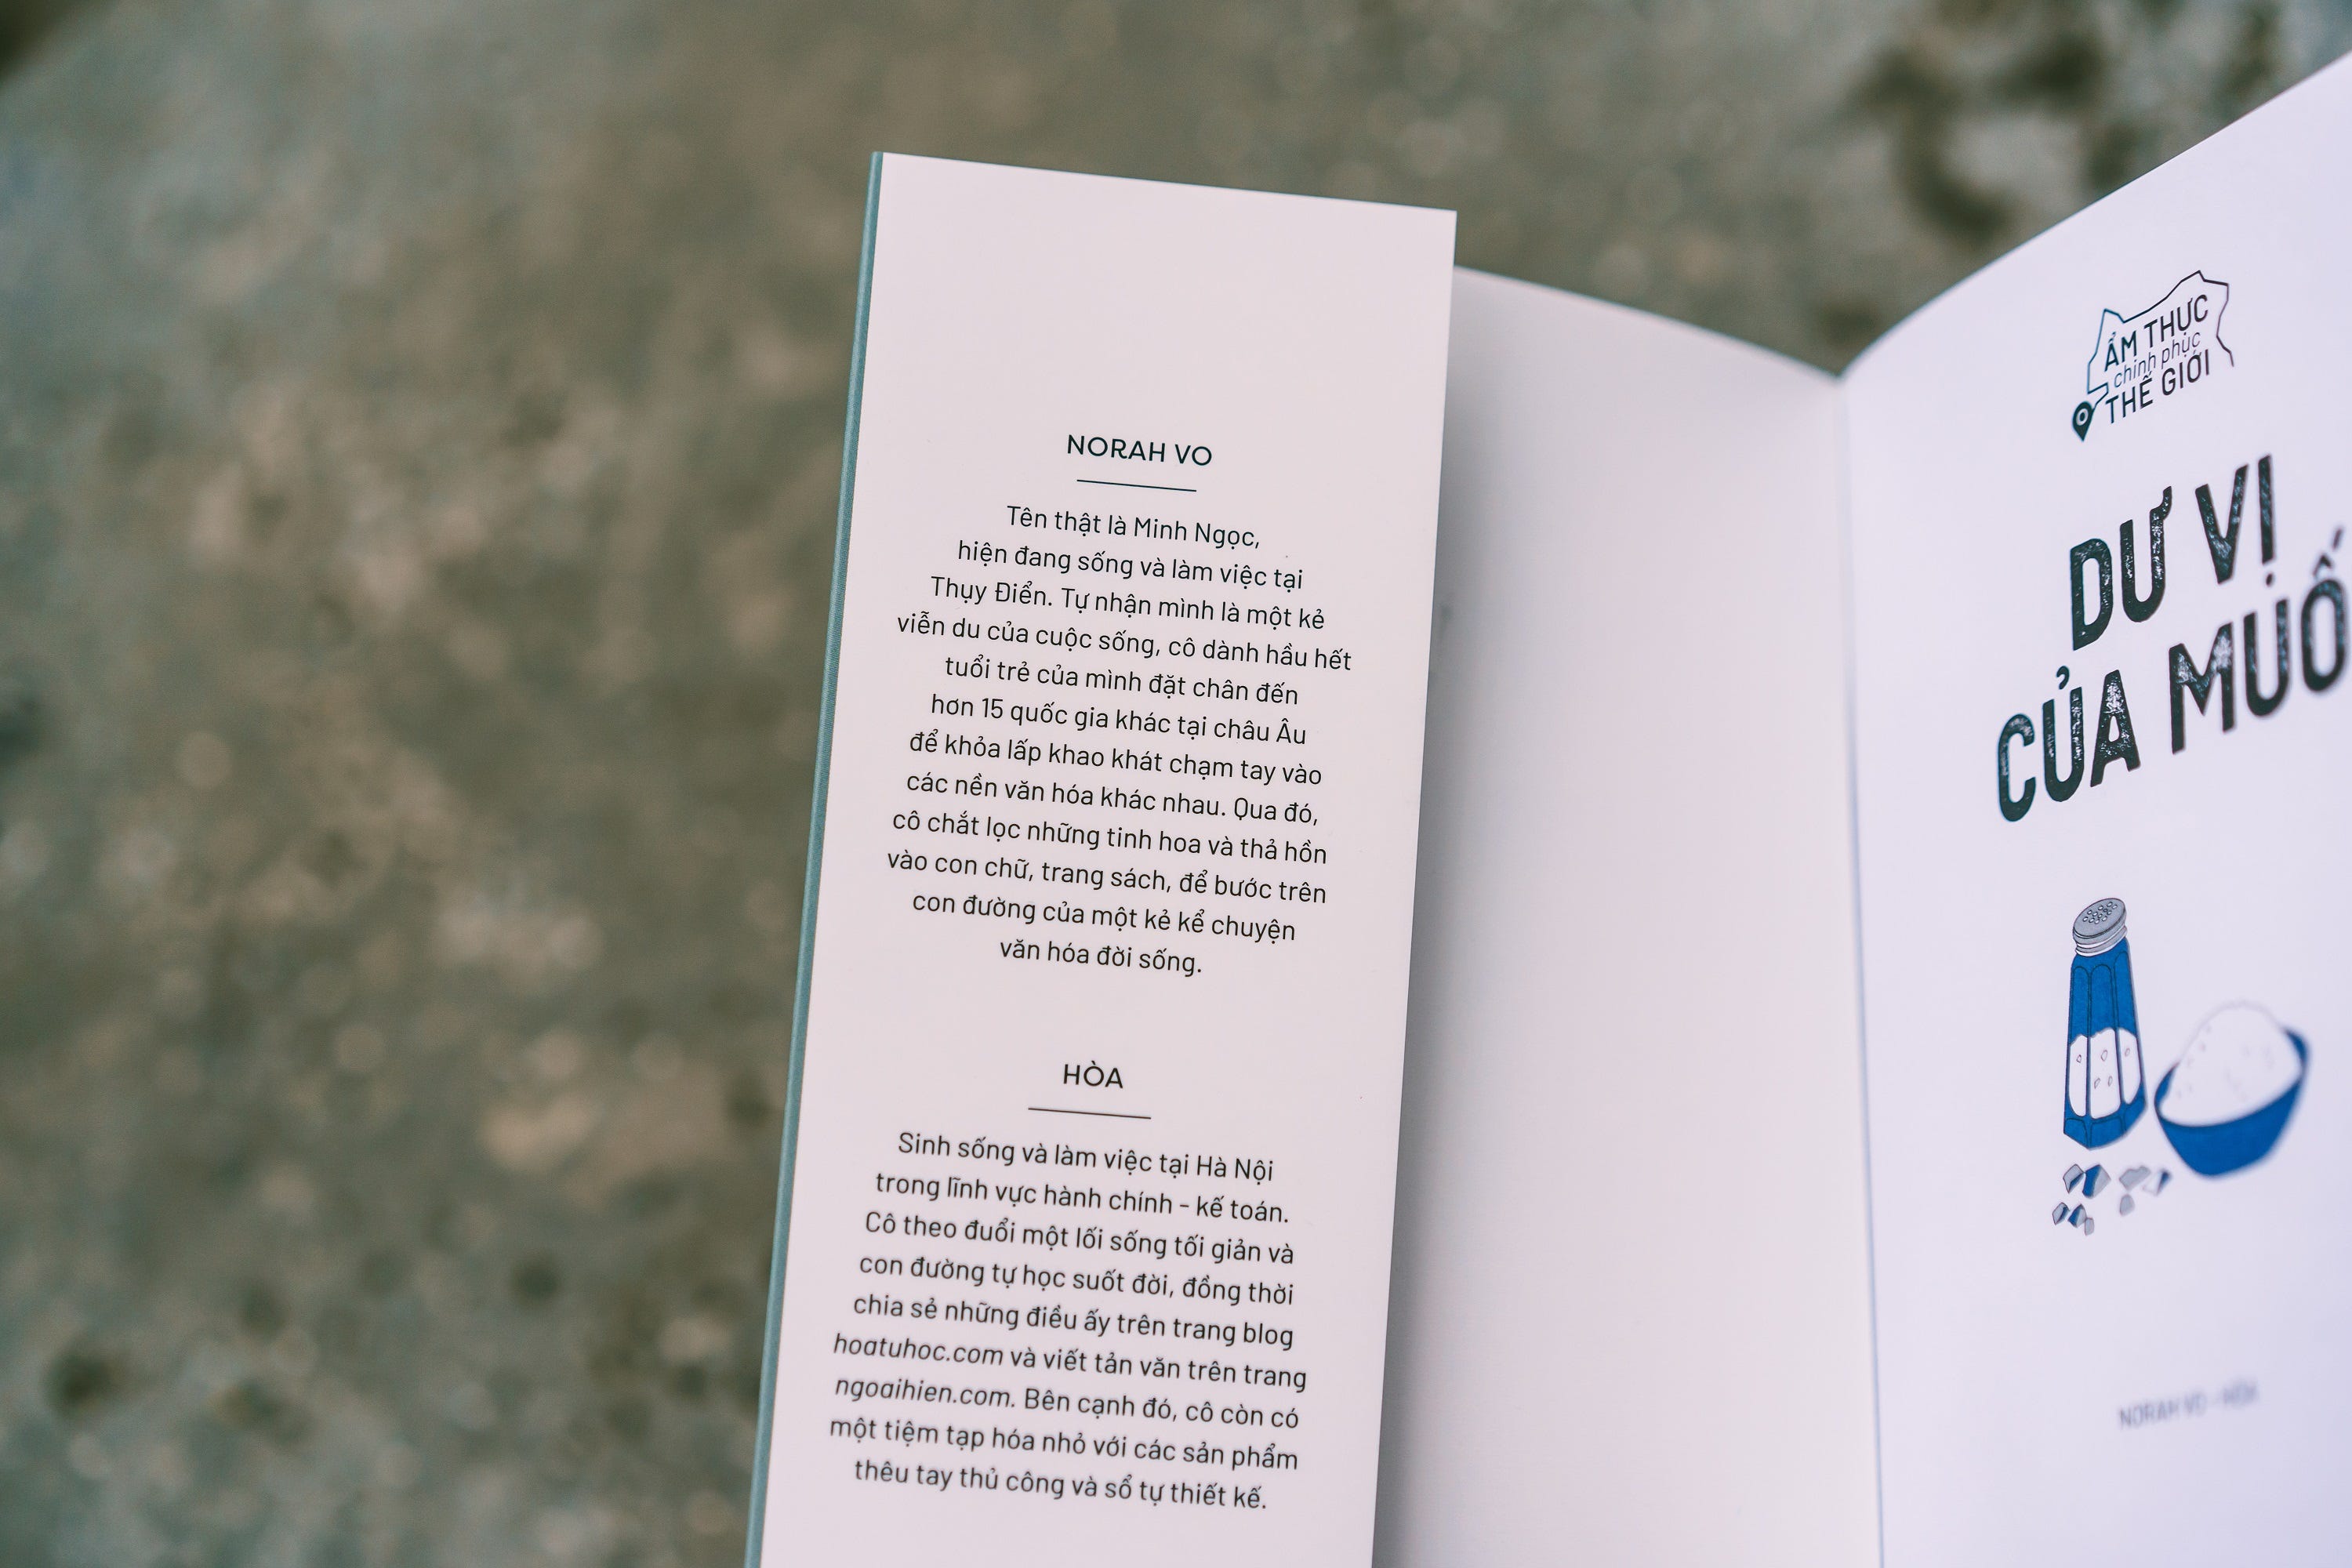 NORAH VO
Tên thật là Minh Ngọc,
hiện đang sống và làm việc tại
Thụy Điển. Tự nhận mình là một kẻ
viễn du của cuộc sống, cô dành hầu hết
tuổi trẻ của mình đặt chân đến
hơn 15 quốc gia khác tại châu Âu
để khỏa lấp khao khát chạm tay vào
các nền văn hóa khác nhau. Qua đó,
cô chắt lọc những tinh hoa và thả hồn
vào con chữ, trang sách, để bước trên
con đường của một kẻ kể chuyện
văn hóa đời sống.
HÒA
Sinh sống và làm việc tại Hà Nội
trong lĩnh vực hành chính - kế toán.
Cô theo đuổi một lối sống tối giản và
con đường tự học suốt đời, đồng thời
chia sẻ những điều ấy trên trang blog
hoatuhoc.com và viết tản văn trên trang
ngoaihien.com. Bên cạnh đó, cô còn có
một tiệm tạp hóa nhỏ với các sản phẩm
thêu tay thủ công và sổ tự thiết kế.
ẨM THỰC
chinh phục
THẾ GIỚI
DƯ VỊ
CỦA MUỐ
NORAH VO - HÒA